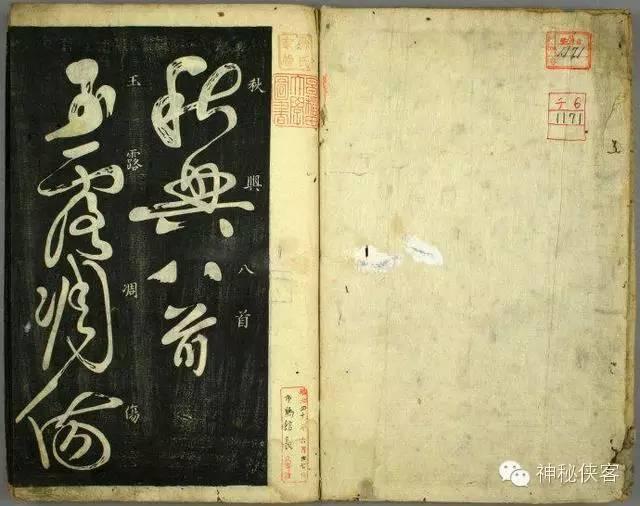 秋興八首
秋興八首
玉露凋傷
玉露凋傷
チ6
1171
1171
市島館長
神秘侠客